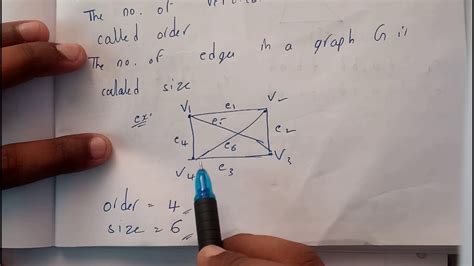 The no. of
called order
The no. of edges in a graph G is
calaled size
ex:
V1 e1 V2
e5
e4 e2
e6
V4 e3 V3
order = 4
size = 6